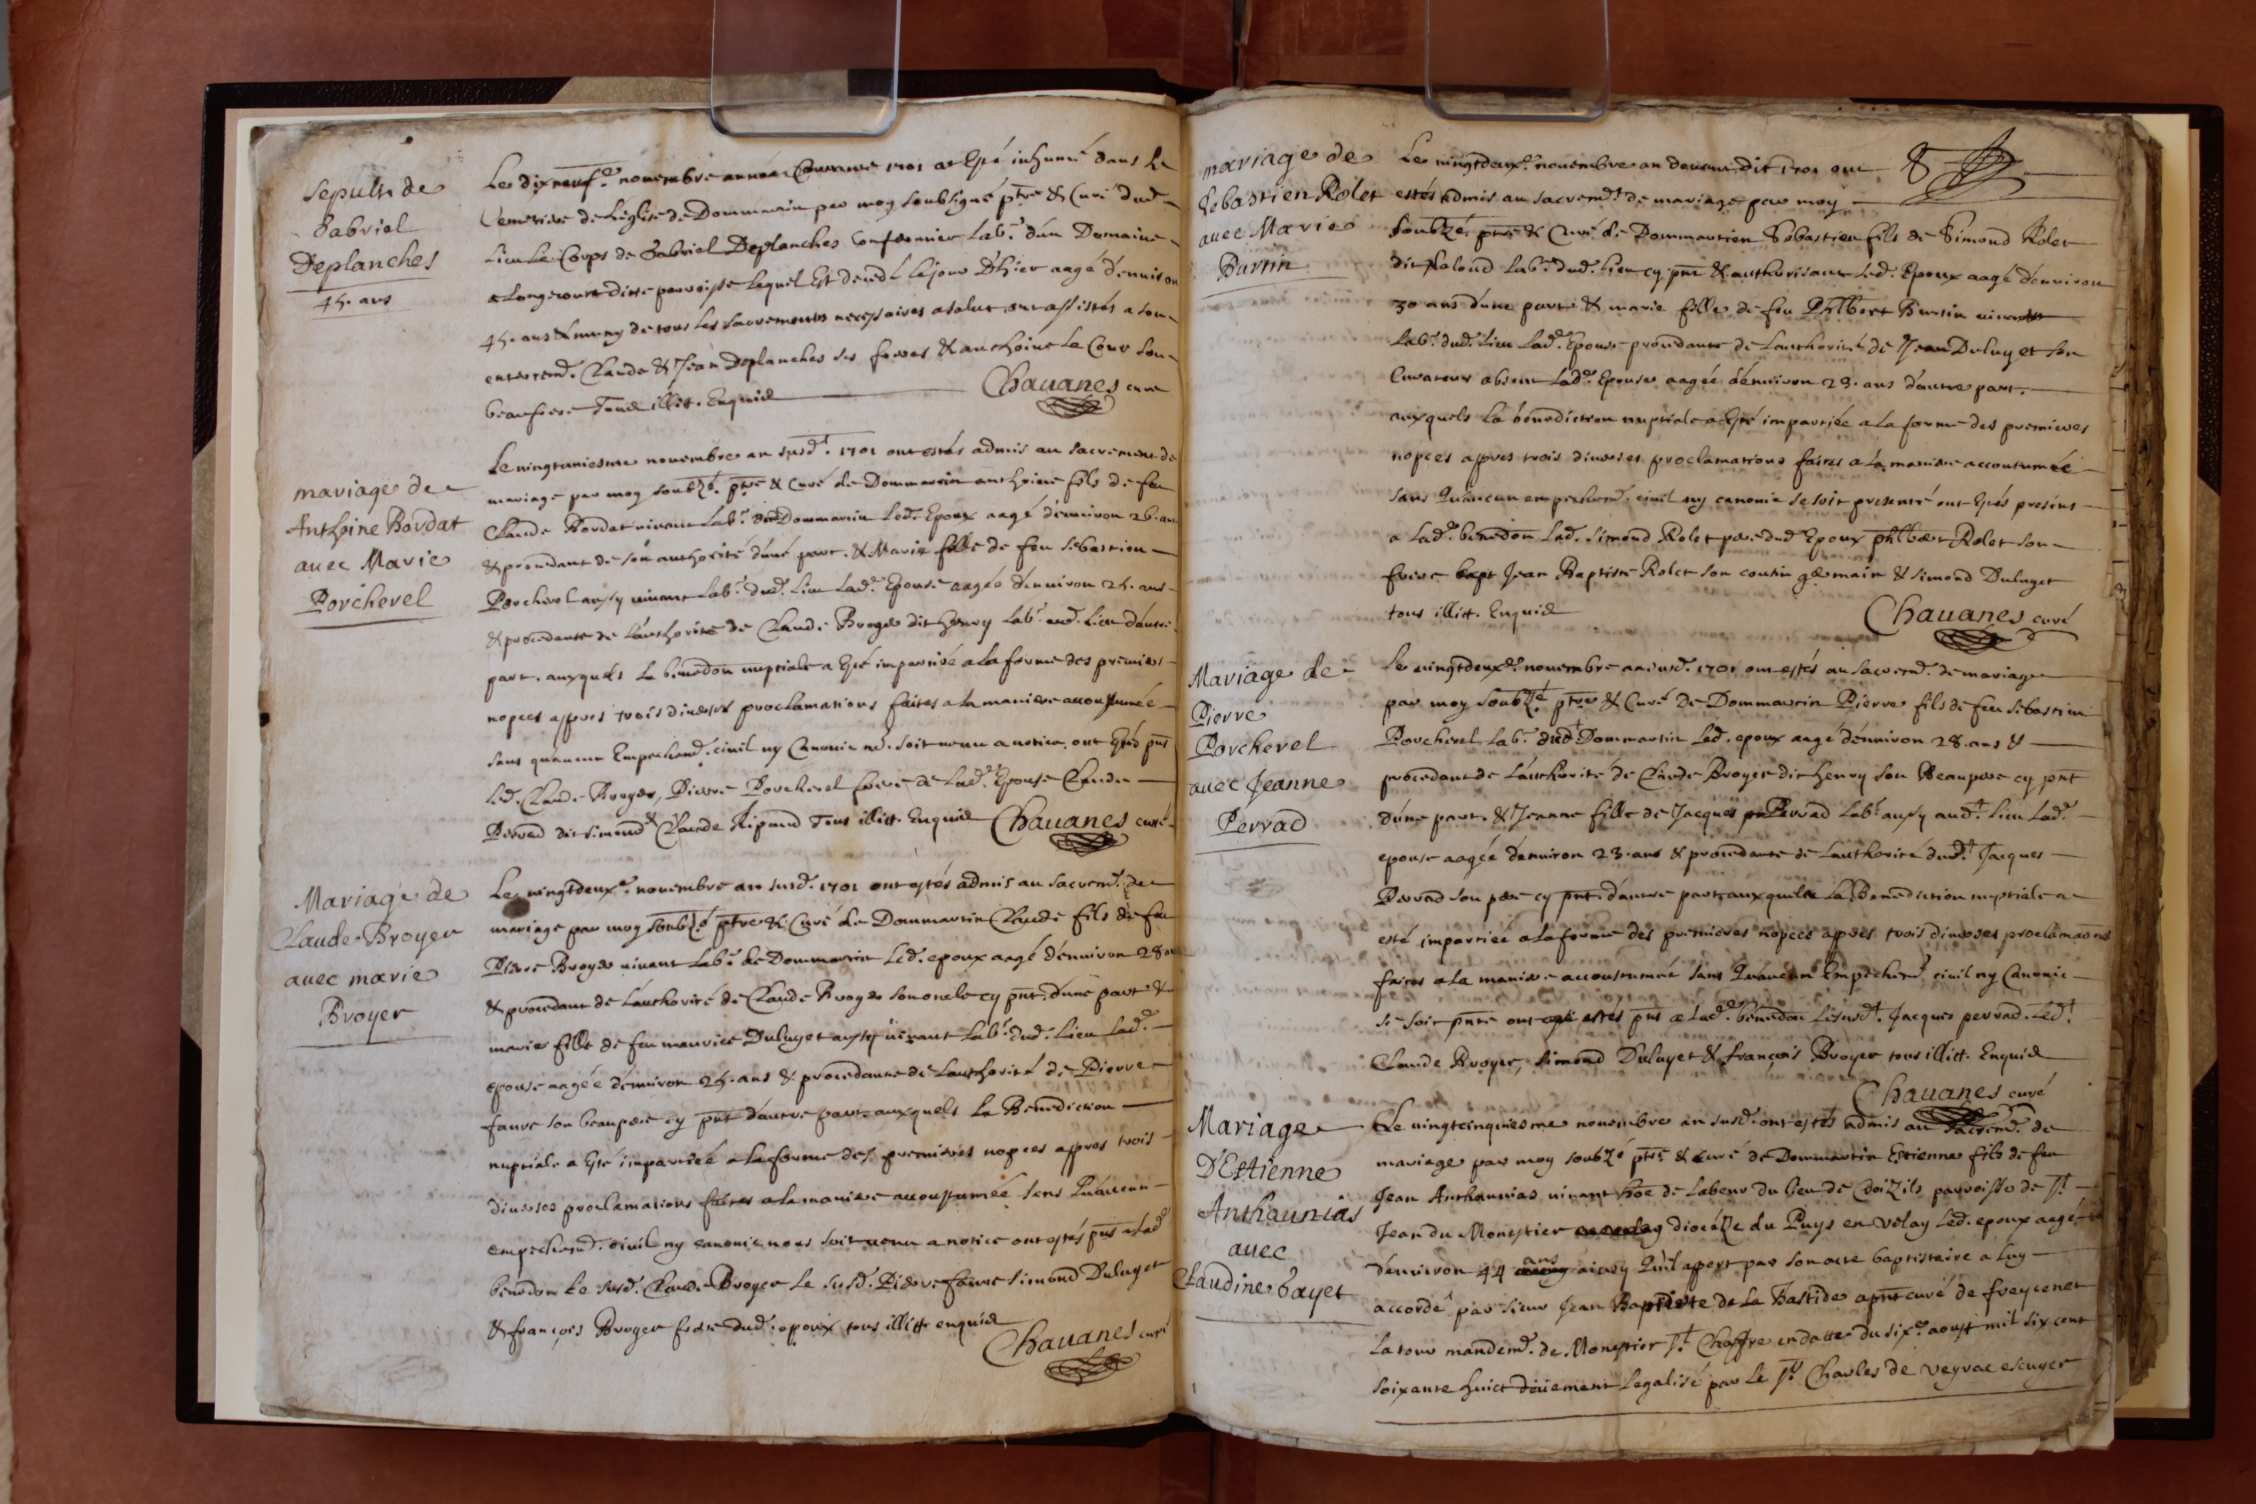 Sepultr. de
Gabriel
Deplanches
45. ans
Le dixneufe. novembre année Courante 1701 a Esté inhumé dans le
Cemetiere de Leglise de Dommartin par moy soubsigné ptre & Curé dud.
Lieu Le Corps de Gabriel Deplanches Confermier Labr. d'un Domaine
a Longecourt ditte parroisse Lequel Est decedé Le jour d'hier aagé d'environ
45. ans & muny de tous les sacrements necessaires a salut ont assistés a son
enterremt. Claude & Jean Deplanches ses freres & anthoine Le Cour son
beaufrere Tous illitt. Enquid
Chavanes curé
mariage de
Anthoine Bordat
avec Marie
Porcherel
Le vingtuniesme novembre an susdt. 1701 ont estés admis au sacrement de
mariage par moy soubzé. ptre & Curé de Dommartin anthoine fils de feu
Claude Bordat vivant Labr. dud Dommartin Led. Epoux aagé d'environ 26. ans
& procedant de son authorité d'une part. & Marie fille de feu sebastien
Porcherel aussy vivant Labr. dud. Lieu Lade. Epouse aagée d'environ 25. ans
& procedante de L'authorité de Claude Broyer dit henry Labr. aud. Lieu d'autre
part. auxquels La benedon nuptiale a Esté impartiée a la forme des premieres
nopces appres trois diverses proclamations faites a la maniere accoustumée
sans qu'aucun Empechemt. civil ny Canonic nd. soit venu a notice, ont Estés pnts
Led. Claude Broyer, Pierre Porcherel frere de Lade. Epouse Claude
Perrad dit simond & Claude Ripaud Tous illitt. Enquid Chavanes curé
Mariage de
Claude Broyer
avec marie
Broyer
Le vingtdeuxe. novembre an susd. 1701 ont estés admis au sacremt. de
mariage par moy soubzé ptre & Curé de Dommartin Claude fils de feu
Pierre Broyer vivant Labr. de Dommartin Led. epoux aagé d'environ 28 ans
& procedant de L'authorité de Claude Broyer son oncle cy pnt. d'une part &
marie fille de feu maurice Duluget aussy vivant Labr. dud. Lieu Lade.
epouse aagée d'environ 25. ans & procedante de L'authorité de Pierre
favre son beaupere cy pnt d'autre part auxquels La Benediction
nuptiale a Esté impartiée a la forme des premieres nopces appres trois
diverses proclamations faites a la maniere accoustumée sans Qu'aucun
empechemt. civil ny canonic nous soit venu a notice ont estés pnts a Lad
benedon Le susd. Claude Broyer Le susd. Pierre favre simond Duluget
& françois Broyer frere dud. epoux tous illitt. enquid
Chavanes curé
mariage de
Sebastien Rolet
avec Marie
Burtin
Le vingtdeuxe. novembre an devant dit 1701 ont
estés admis au sacremt. de mariage par moy
soubzé. ptre & Curé de Dommartien Sebastien fils de Simond Rolet
dit Labr. dud. Lieu cy pnt & authorisant Led. Epoux aagé d'environ
30 ans d'une part & marie fille de feu Philbert Burtin vivant
Labr. dud. Lieu Lade. Epouse procedante de L'authorité de Jean Duluget son
Curateur absent Lade. Epouse aagée d'environ 23. ans d'autre part.
auxquels La benediction nuptiale a Esté impartiée a la forme des premieres
nopces appres trois diverses proclamations faites a la maniere accoutumée
sans Qu'aucun empechemt. civil ny canonic se soit presenté ont Estés presents
a Lade. benedon Led. Simond Rolet pere dud. Epoux philbert Rolet son
frere Jean Baptiste Rolet son cousin germain & simond Duluget
tous illitt. Enquid
Chavanes curé
Mariage de
Pierre
Porcherel
avec Jeanne
Perrad
Le vingtdeuxe. novembre an susd. 1701 ont estés au sacremt. de mariage
par moy soubzé. ptre & Curé de Dommartin Pierre fils de feu sebastien
Porcherel Labr. dud Dommartin Led. epoux aagé d'environ 28. ans &
procedant de L'authorité de Claude Broyer dit henry son Beaupere cy pnt
d'une part. & Jeanne fille de Jacques Perrad Labr. aussy audt. Lieu Lade.
epouse aagée d'environ 23. ans & procedante de L'authorité dudt. Jacques
Perrad son pere cy pnt d'autre part auxquels La Benediction nuptiale a
esté impartiée a la forme des premieres nopces appres trois diverses proclamaons
faites a la maniere accoustumée sans Qu'aucun Empechemt. civil ny Canonic
se soit pnté ont estés pnts a Lade. benedon Lesusdt. Jacques perrad. Ledt.
Claude Broyer, Simond Duluget & françois Broyer tous illitt. Enquid
Chavanes curé
Mariage
D'Estienne
Anthaunias
avec
Claudine Gayet
Le vingtcinquiesme novembre an susd. ont estés admis au sacremt. de
mariage par moy soubzé ptre & curé de Dommartin Estienne fils de feu
Jean Anthaunias vivant hoe de Labeur du Lieu de parroisse de St.
Jean du Monestier diocèze du Puys en Velay Led. epoux aagé
d'environ 44 ans ainsy Qu'il apert par son acte baptistaire a Luy
accordé par sieur Jean Baptiste de La Bastide curé de freycenet
Latour mandemt. de Monestier St. Chaffre en datte du sixe. aoust mil six cent
soixante huict düement Legalisé par Le Sr. Charles de Veyrac escuyer